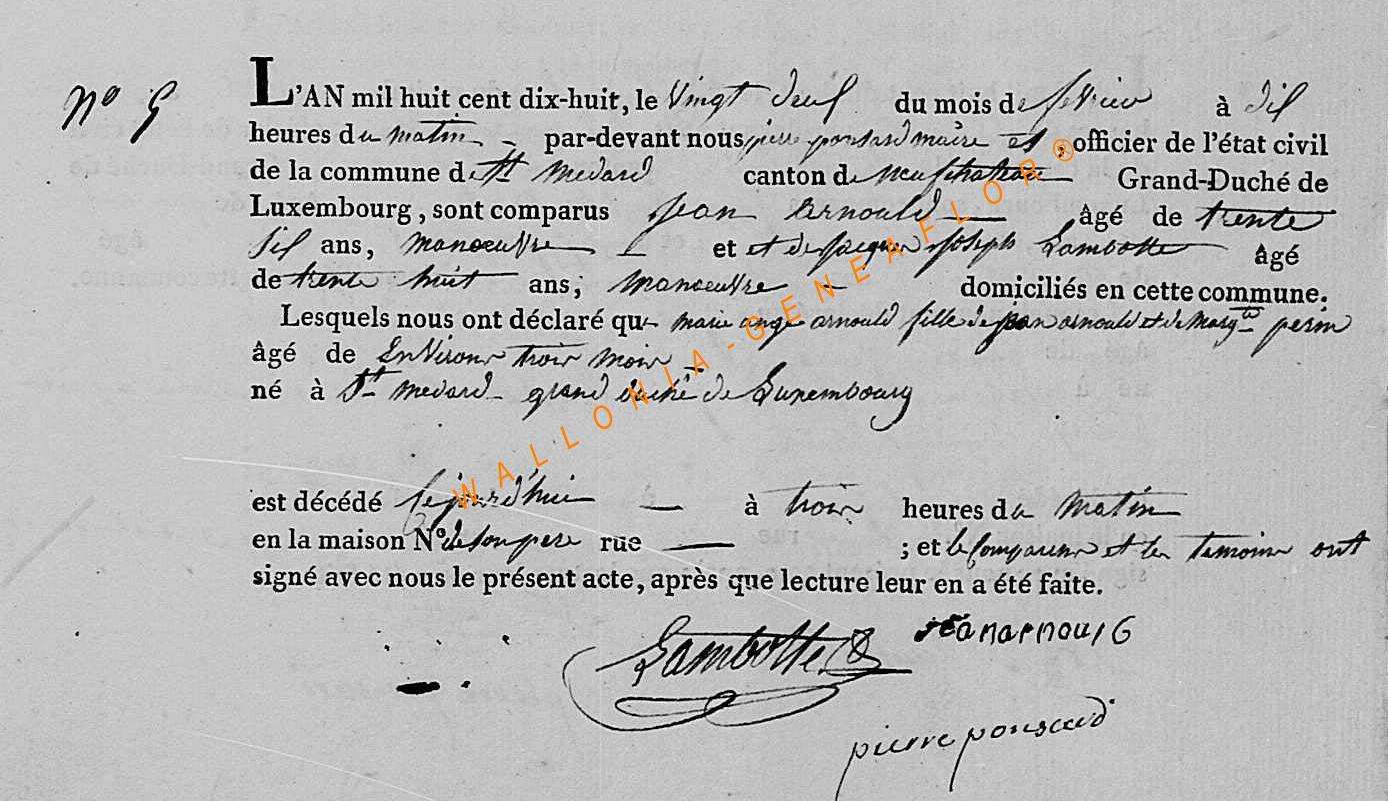 N° 5
L'AN mil huit cent dix-huit, le Vingt deux du mois de fevrier à dix
heures du matin - par-devant nous pierre ponsard maire et, officier de l'état civil
de la commune de St medard canton de neufchateau Grand-Duché de
Luxembourg, sont comparus Jean Arnould âgé de trente
six ans, manoeuvre et et de Jacques Joseph Lambotte âgé
de trente huit ans, manoeuvre - domiciliés en cette commune.
Lesquels nous ont déclaré que marie ange arnould fille de jean arnould et de Marg.te perin
âgé de Environs trois mois
né à St medard grand duché de Luxembourg
est décédé cejourd'hui — à trois heures du Matin
en la maison N° de son pere rue — ; et le Comparens et les temoins ont
signé avec nous le présent acte, après que lecture leur en a été faite.
Lambotte
pierre ponsard
WALLONIA-GENEAFLOR®